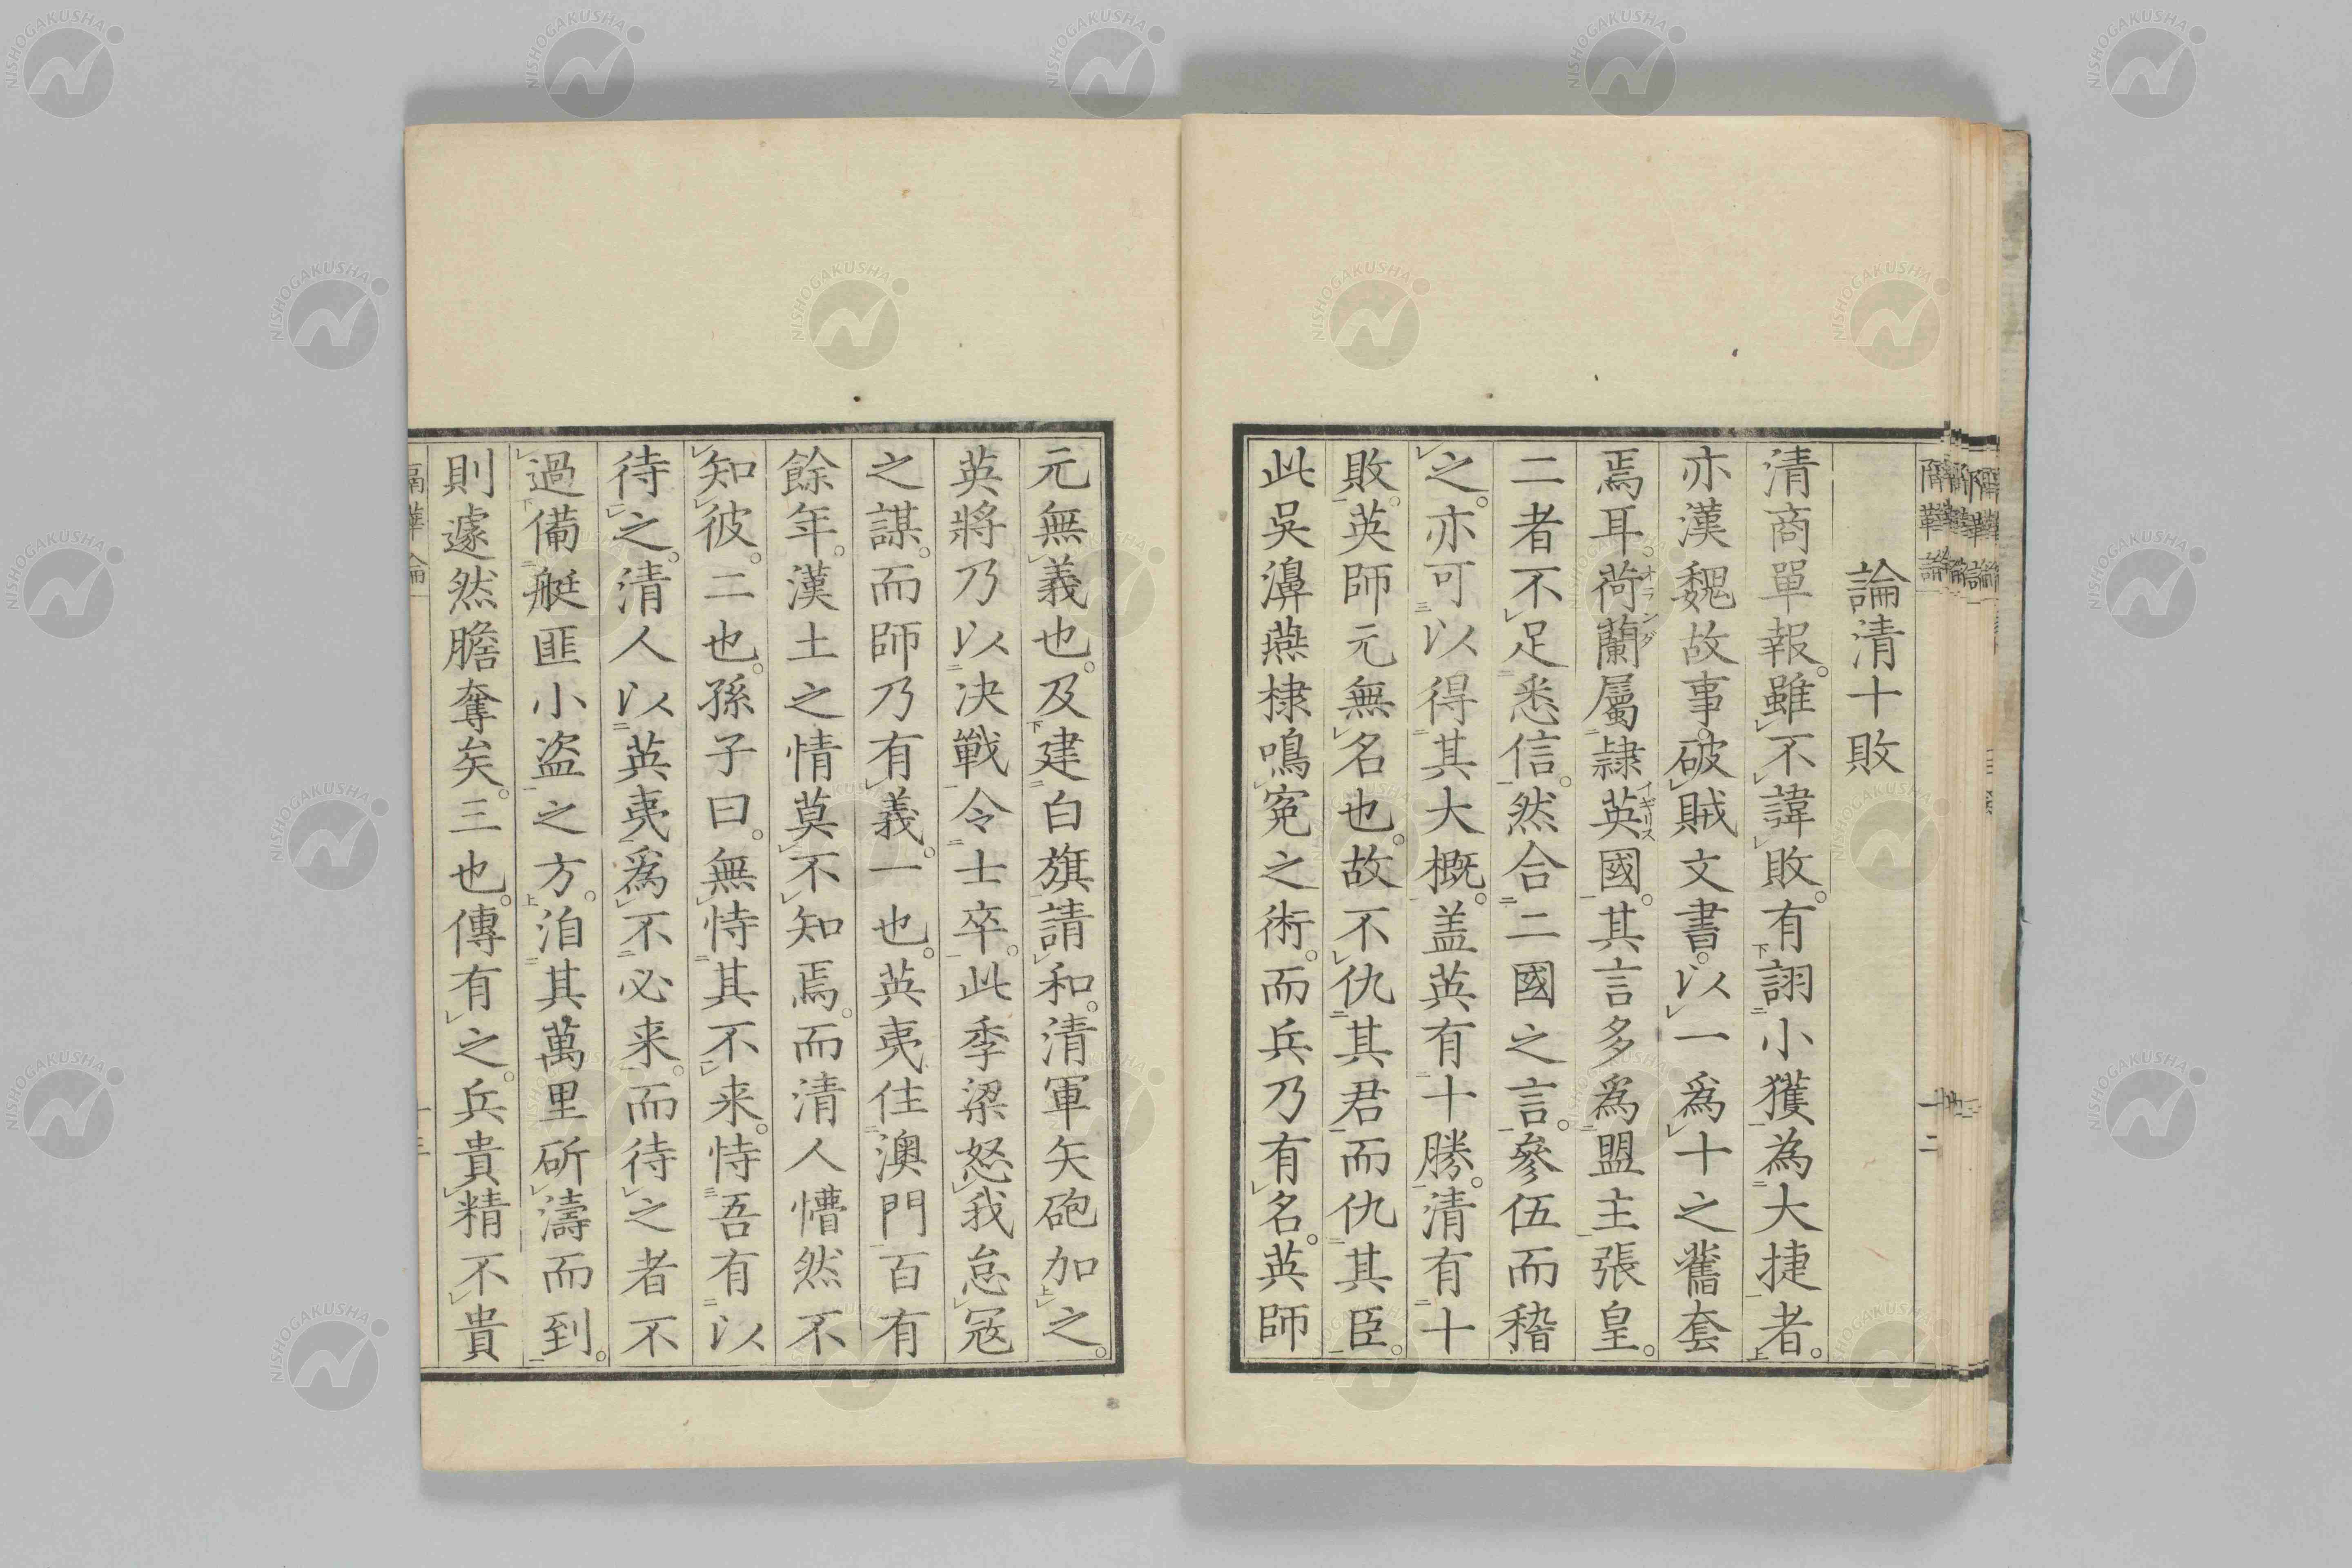 論清十敗
清商單報。雖不諱敗。有詡小獲為大捷者。
亦漢魏故事。破賊文書。以一爲十之舊套
焉耳。荷蘭屬隷英國。其言多爲盟主張皇。
二者不足悉信。然合二國之言。參伍而稽
之。亦可以得其大概。盖英有十勝。清有十
敗。英師元無名也。故不仇其君而仇其臣。
此吳濞燕棣鳴寃之術。而兵乃有名。英師
元無義也。及建白旗請和。清軍矢砲加之。
英將乃以决戰令士卒。此季梁怒我怠冦
之謀。而師乃有義。一也。英夷住澳門百有
餘年。漢土之情莫不知焉。而清人懵然不
知彼。二也。孫子曰。無恃其不来。恃吾有以
待之。清人以英夷爲不必来。而待之者不
過備艇匪小盗之方。洎其萬里斫濤而到。
則遽然膽奪矣。三也。傳有之。兵貴精不貴
隔鞾論
十二
オランダ
イギリス
NISHOGAKUSHA